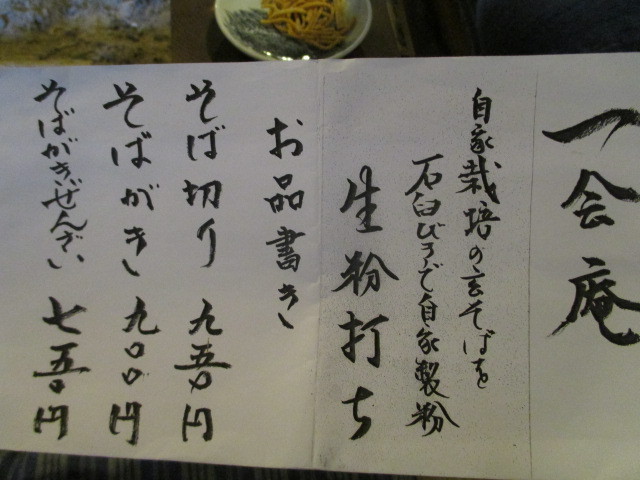 一会庵
自家栽培の玄そばを
石臼びきで自家製粉
生粉打ち
お品書き
そば切り 九五〇円
そばがき 九〇〇円
そばがきぜんざい 七五〇円